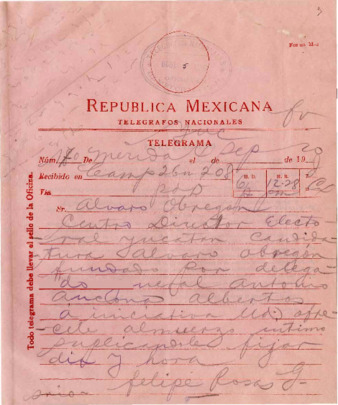 3
REPUBLICA MEXICANA
TELEGRAFOS NACIONALES
TELEGRAMA
Núm. 40 De Merida el de Sep de 1920
Recibido en Camp
Via
H. D. H. R.
Sr. Alvaro Obregon
Centro Director Electo-
ral yucatan candida
tura alvaro obregon
fundado por delega
do Antonio
Ancona Albertos
a iniciativa ofre-
cele almuerzo intimo
suplicandole fijar
dia y hora
felipe Rosas G-
srio-
Todo telegrama debe llevar el sello de la Oficina.